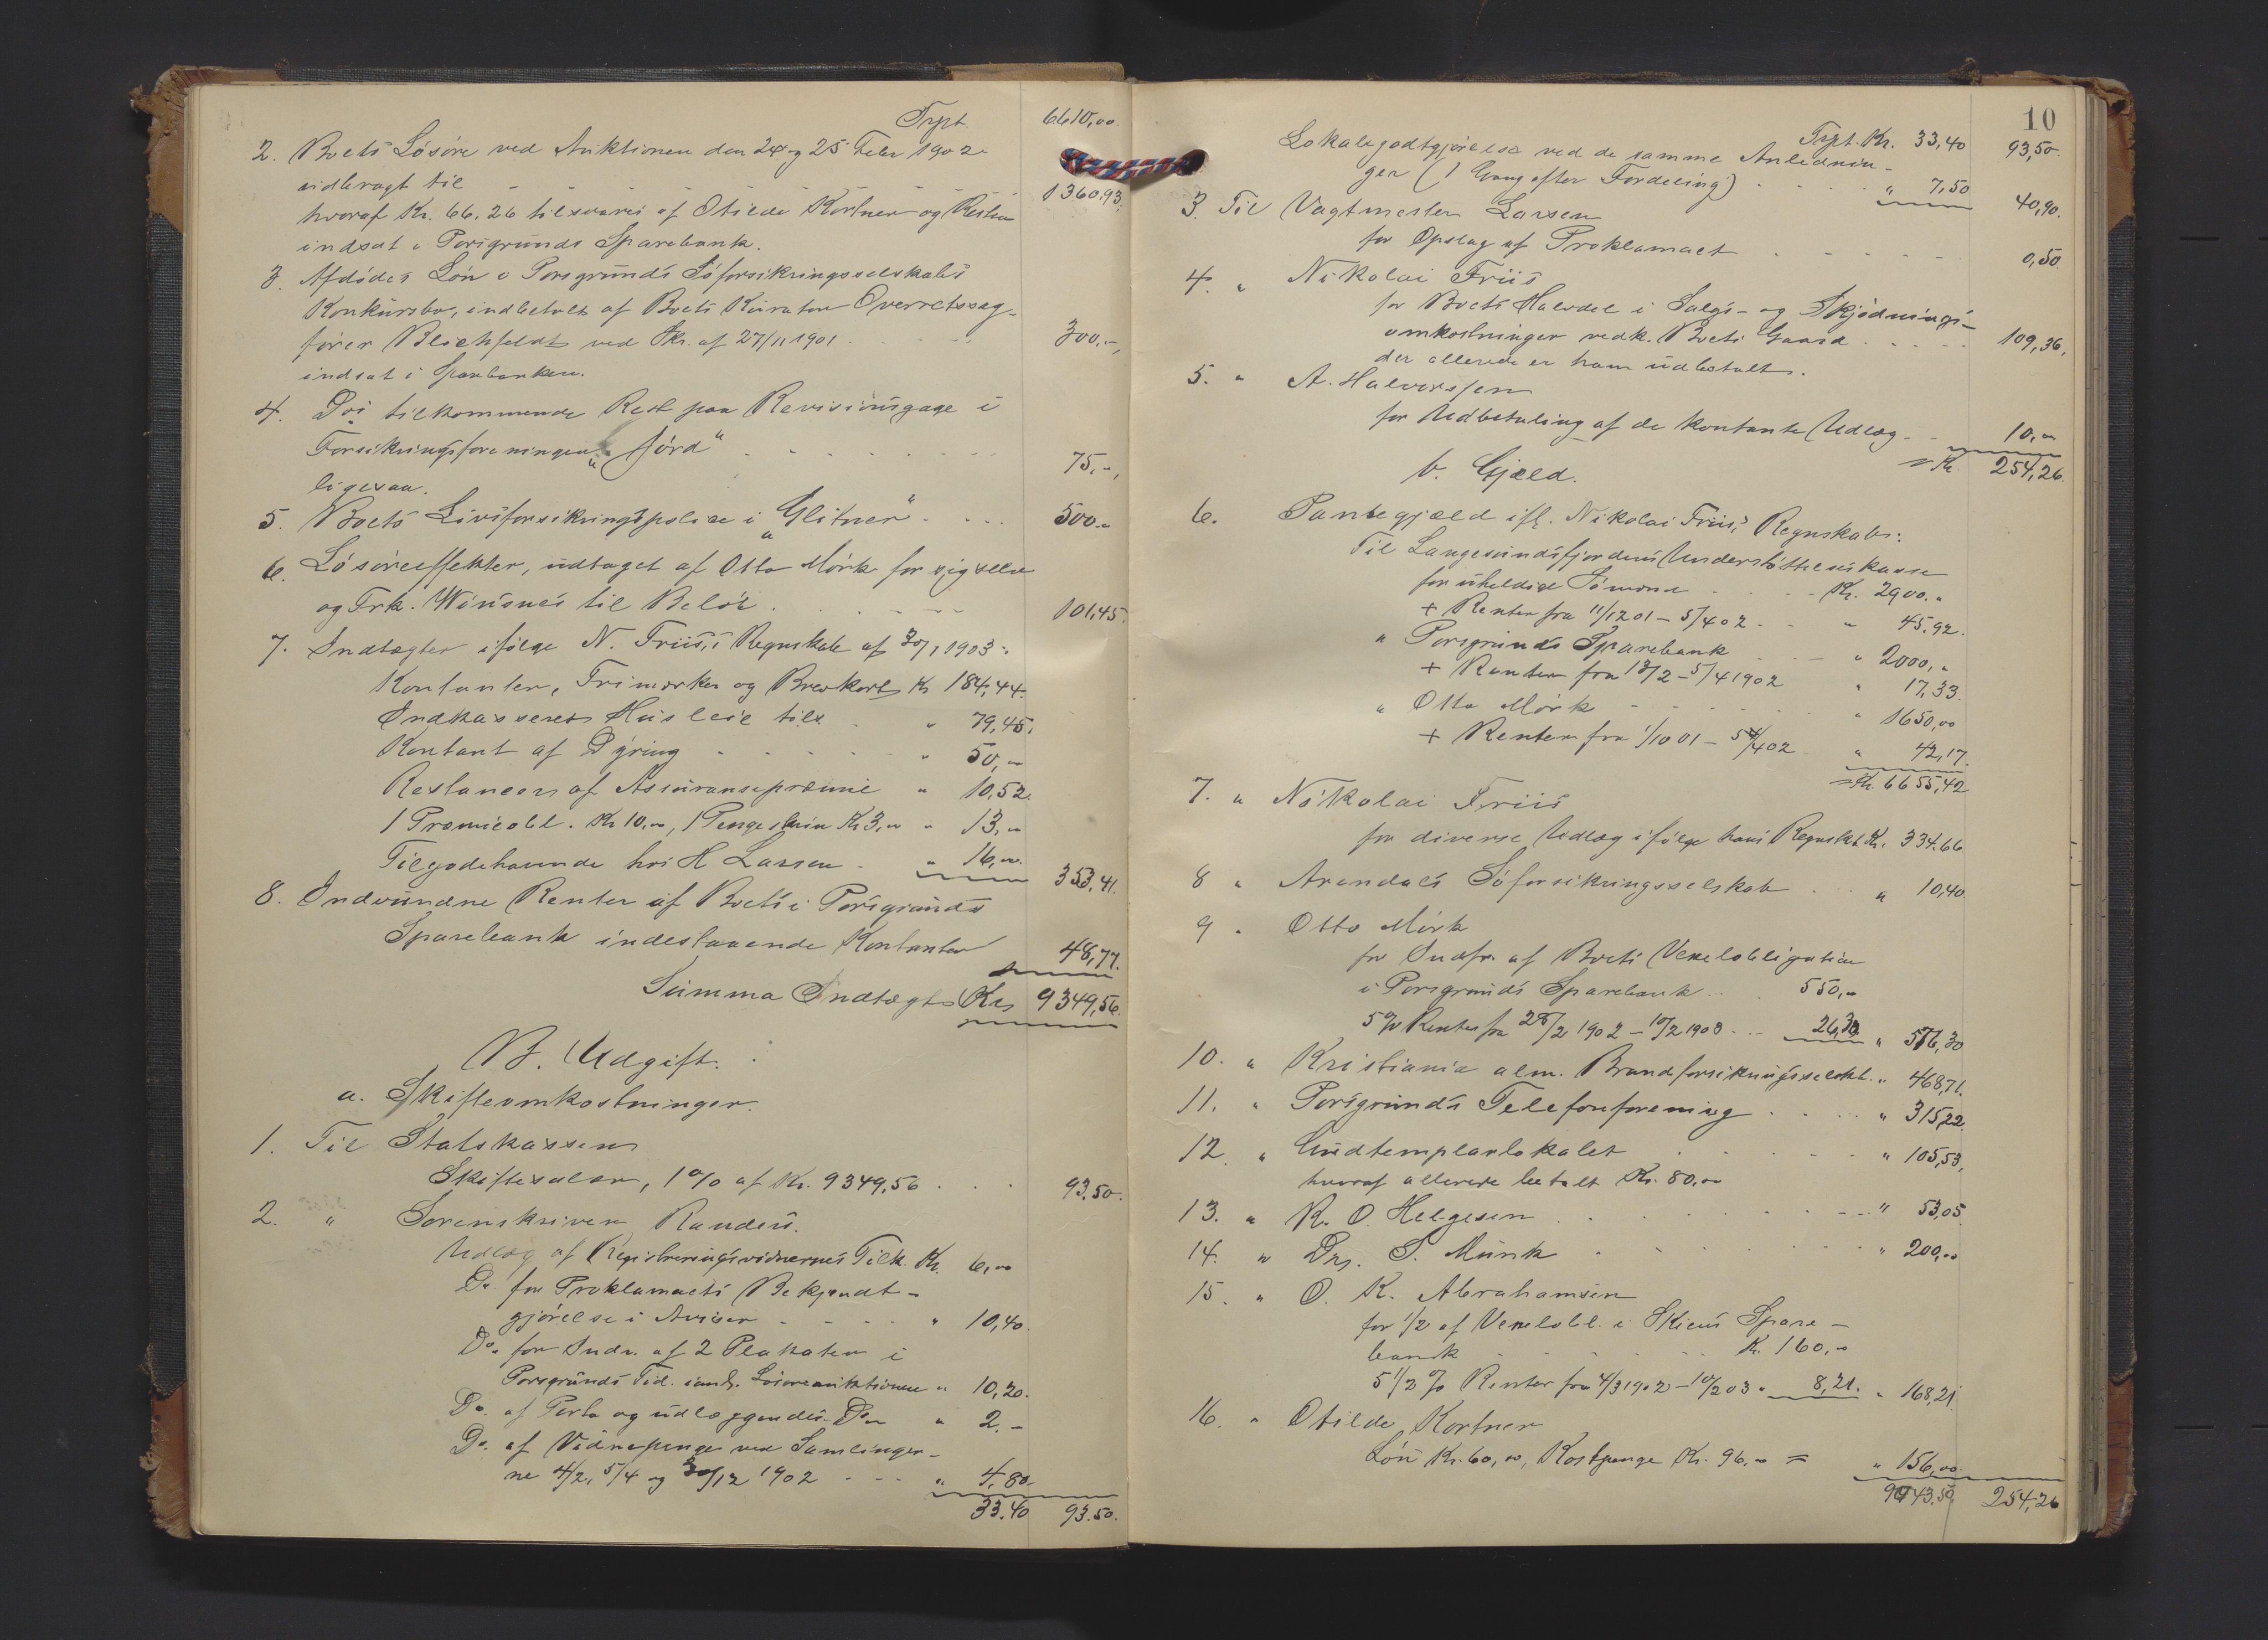 Trpt. 6610,00.
2. Boets Løsøre ved Auktionen den 24 og 25 Febr 1902
udbragt til - - - - - - 1360.93.
hvoraf Kr. 66,26 tilsvares af Otilde Kortner og Resten
indsat i Porsgrunds Sparebank.
3. Afdødes Løn i Porsgrunds Søforsikringsselskabs
Konkursbo, indbetalt af Boets Kurator Overretssag-
fører Blechfeldt ved Skr. af 27/11 1901 - - - 300,-,
indsat i Sparbanken.
4. Do tilkommende Rest paa Revisionsgage i
Forsikringsforeningen „Fjord“ - - - - 75,-,
ligesaa.
5. Boets Livsforsikringspolise i „Glitner“ - - - 500.-
6. Løsøreeffekter, udtaget af Otto Mørk for sig selv
og Frk. Winsnes til Beløb - - - 101,45.
7. Indtægter ifølge N. Friis's Regnskab af 30/1 1903:
Kontanter, Frimærker og Brevkort Kr 184,44.
Indkasseret Husleie tils. " 79,45.
Kontant af Dyring - - - - " 50,-
Restancer af Assuransepræmie " 10,52.
1 Præmieobl. Kr 10,00, 1 Pengeskrin Kr 3,00 " 13,00
Tilgodehavende hos H Larsen - " 16,00. 353,41.
8. Indvundne Renter af Boets i Porsgrunds
Sparebank indestaaende Kontanter 48,77.
Summa Indtægt Kr 9349,56.
B. Udgift.
a. Skifteomkostninger.
1. Til Statskassen
Skiftesalær, 1% af Kr. 9349,56 . . . 93,50.
2. " Sorenskriver Randers.
Udlæg af Registreringsvidnernes Tilk. Kr. 6,00
Do. for Proklamaets Bekjendt-
gjørelse i Aviser - - - - " 10,40.
Do. for Indr. af 2 Plakater i
Porsgrunds Tid. i anl. Løsøreauktionen " 10,20.
Do. af Porto og udlæggendes Do " 2,-
Do. af Vidnepenge ved Samlinger-
ne 4/2, 5/4 og 30/12 1902 - - - " 4,80.
33.40 93.50.
10
Trpt. Kr. 33,40 93,50.
Lokalegodtgjørelse ved de samme Anlednin-
ger (1 Gang efter Fordeling) - - - - " 7,50 40,90.
3. Til Vagtmester Larsen
for Opslag af Proklamaet - - - - - 0,50
4. " Nikolai Friis
for Boets Halvdel i Salgs- og Skjødnings-
omkostninger vedk. Boets Gaard . . . . 109,36,
der allerede er ham udbetalt.
5. " A. Halvorsen
for Udbetaling af de kontante Udlæg - - 10,00
= Kr. 254,26.
b. Gjæld.
6. Pantegjæld ifl. Nikolai Friis' Regnskab:
Til Langesundsfjordens Understøttelseskasse
for uheldige Sømænd - - - - Kr. 2900.-
+ Renter fra 11/12 01 - 5/4 02 - - " 45,92.
" Porsgrunds Sparebank - - - " 2000,-
+ Renter fra 13/2 - 5/4 1902 " 17,33.
" Otto Mørk - - - - - " 1650,00
+ Renter fra 1/10 01 - 5/4 02 " 42,17.
= Kr. 6655,42
7. " Nikolai Friis
for diverse Udlæg ifølge hans Regnskb. Kr. 334.66
8 " Arendals Søforsikringsselskab - - " 10,40
9 " Otto Mørk
for Indfr. af Boets Vexelobligation
i Porsgrunds Sparebank - - 550,-
5% Renter fra 25/2 1902 - 10/2 1903 - - 26,30 " 576,30
10. " Kristiania alm. Brandforsikringsselskb. " 468,71.
11. " Porsgrunds Telefonforening - - - - " 315,22.
12. " Godtemplarlokalet - - - - " 105,53,
hvoraf allerede betalt Kr. 80,00
13. " K. O. Helgesen - - - - - - " 53,05
14. " Drs. S. Munk - - - - - " 200,00
15. " O. K. Abrahamsen
for 1/2 af Vexelobl. i Skiens Spare-
bank - - - - - - Kr. 160,00
5 1/2 % Renter fra 4/3 1902 - 10/2 03 " 8,21. " 168,21.
16. " Otilde Kortner
Løn Kr. 60,00, Kostpenge Kr. 96,00 = " 156,00.
9043.50, 254,26